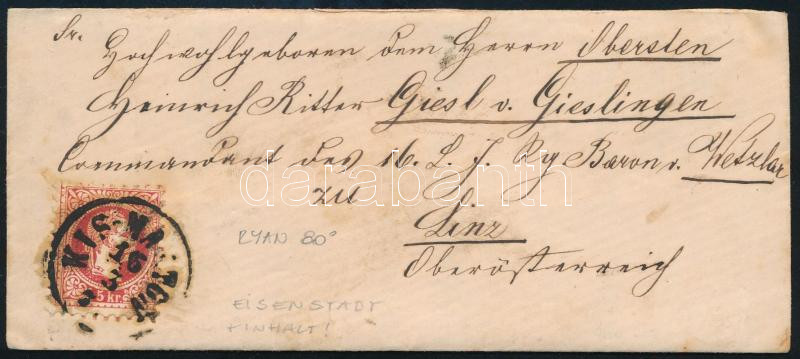 Sr.
Hochwohlgeboren dem Herrn Obersten
Heinrich Ritter Giesl v. Gieslingen
Commandant des 16. L. J. Rg Baron v. Wetzlar
zu
Linz
Oberösterreich
RYAN 80°
EISENSTADT
+INHALT!
KIS-MARTON
5 kr.
darabanth